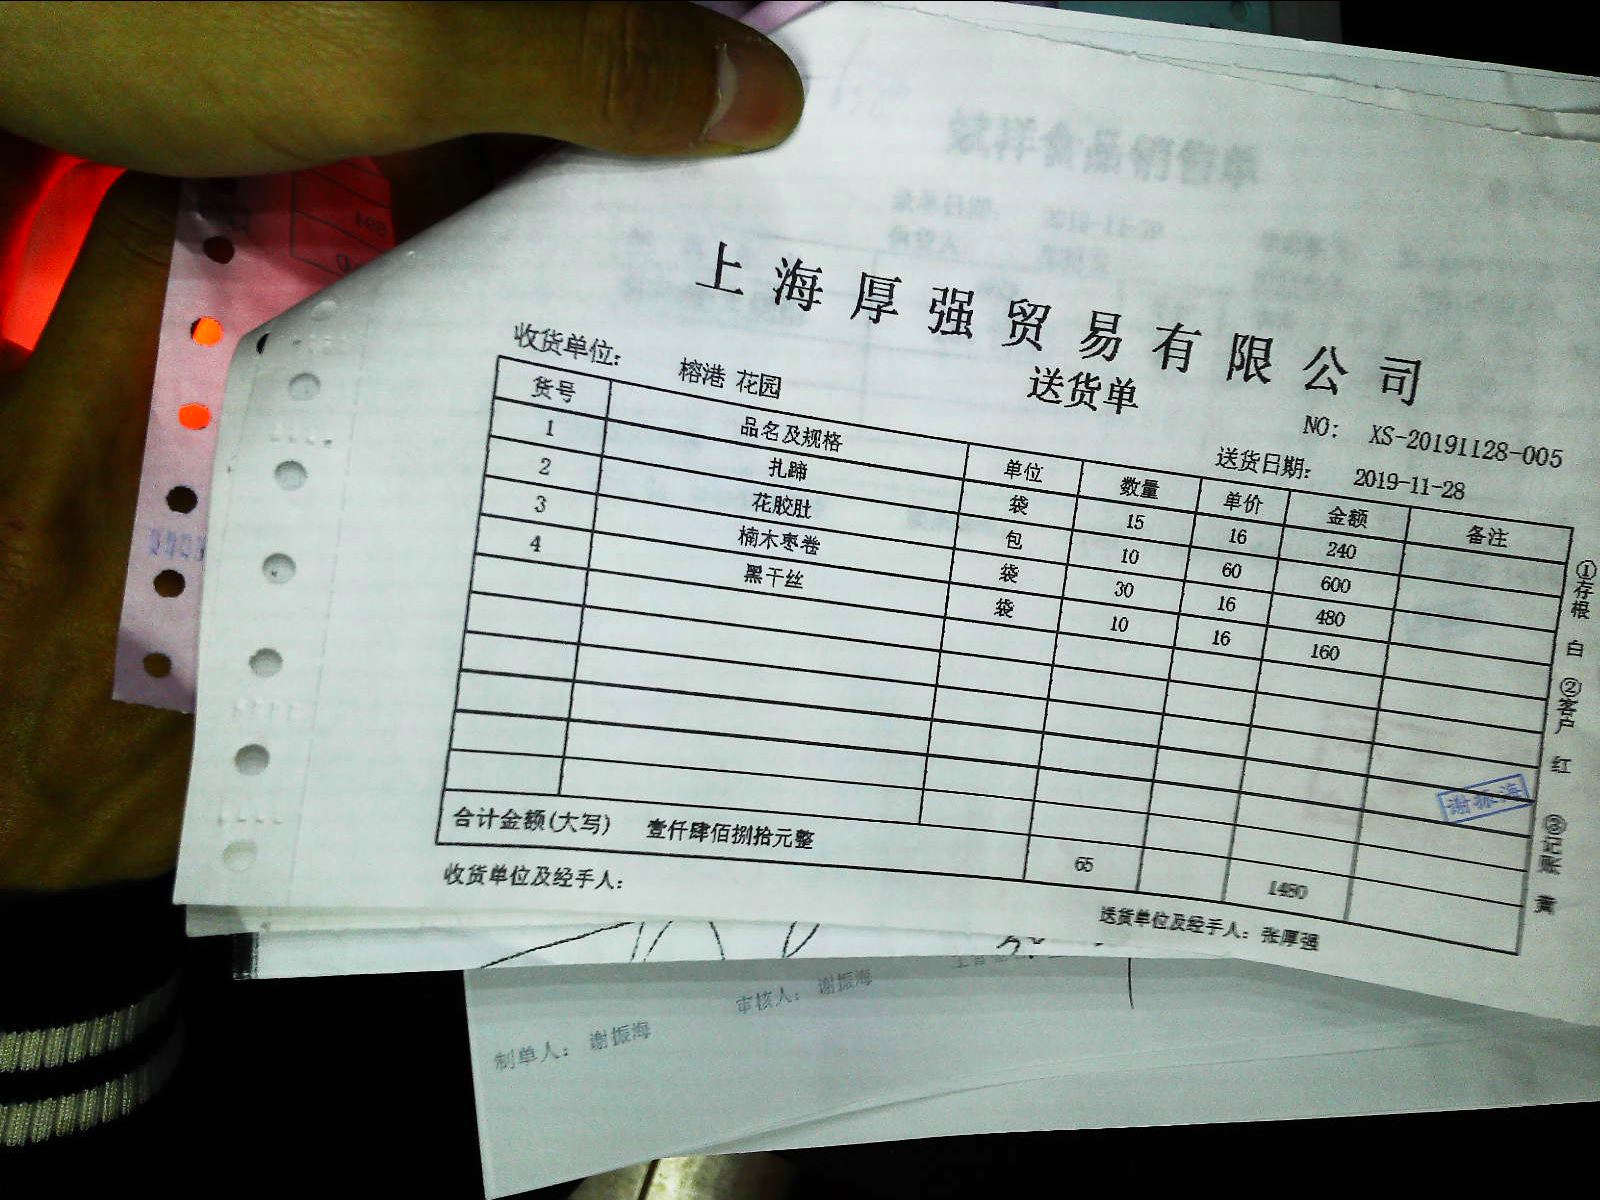 上海厚强贸易有限公司
送货单
收货单位： 榕港 花园
NO： XS-20191128-005
送货日期： 2019-11-28
货号 品名及规格 单位 数量 单价 金额 备注
1 扎蹄 袋 15 16 240
2 花胶肚 包 10 60 600
3 楠木枣卷 袋 30 16 480
4 黑干丝 袋 10 16 160
合计金额(大写) 壹仟肆佰捌拾元整 65 1480
收货单位及经手人：
送货单位及经手人：张厚强
①存根 白 ②客户 红 ③记账 黄
谢振海
审核人： 谢振海
制单人： 谢振海